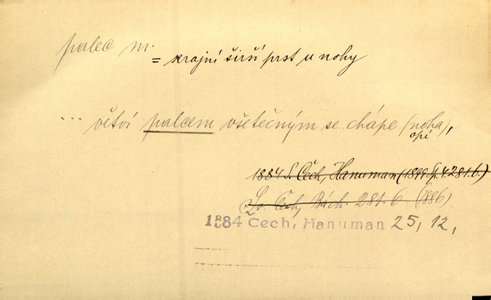 palec m.
= krajní širší prst u nohy
... větví palcem všetečným se chápe (noha),
opi
1884 S. Čech, Hanuman (1899) 281.6.)
Sv. Čech, Básn. 281.6 (886)
1884 Čech, Hanuman 25, 12,